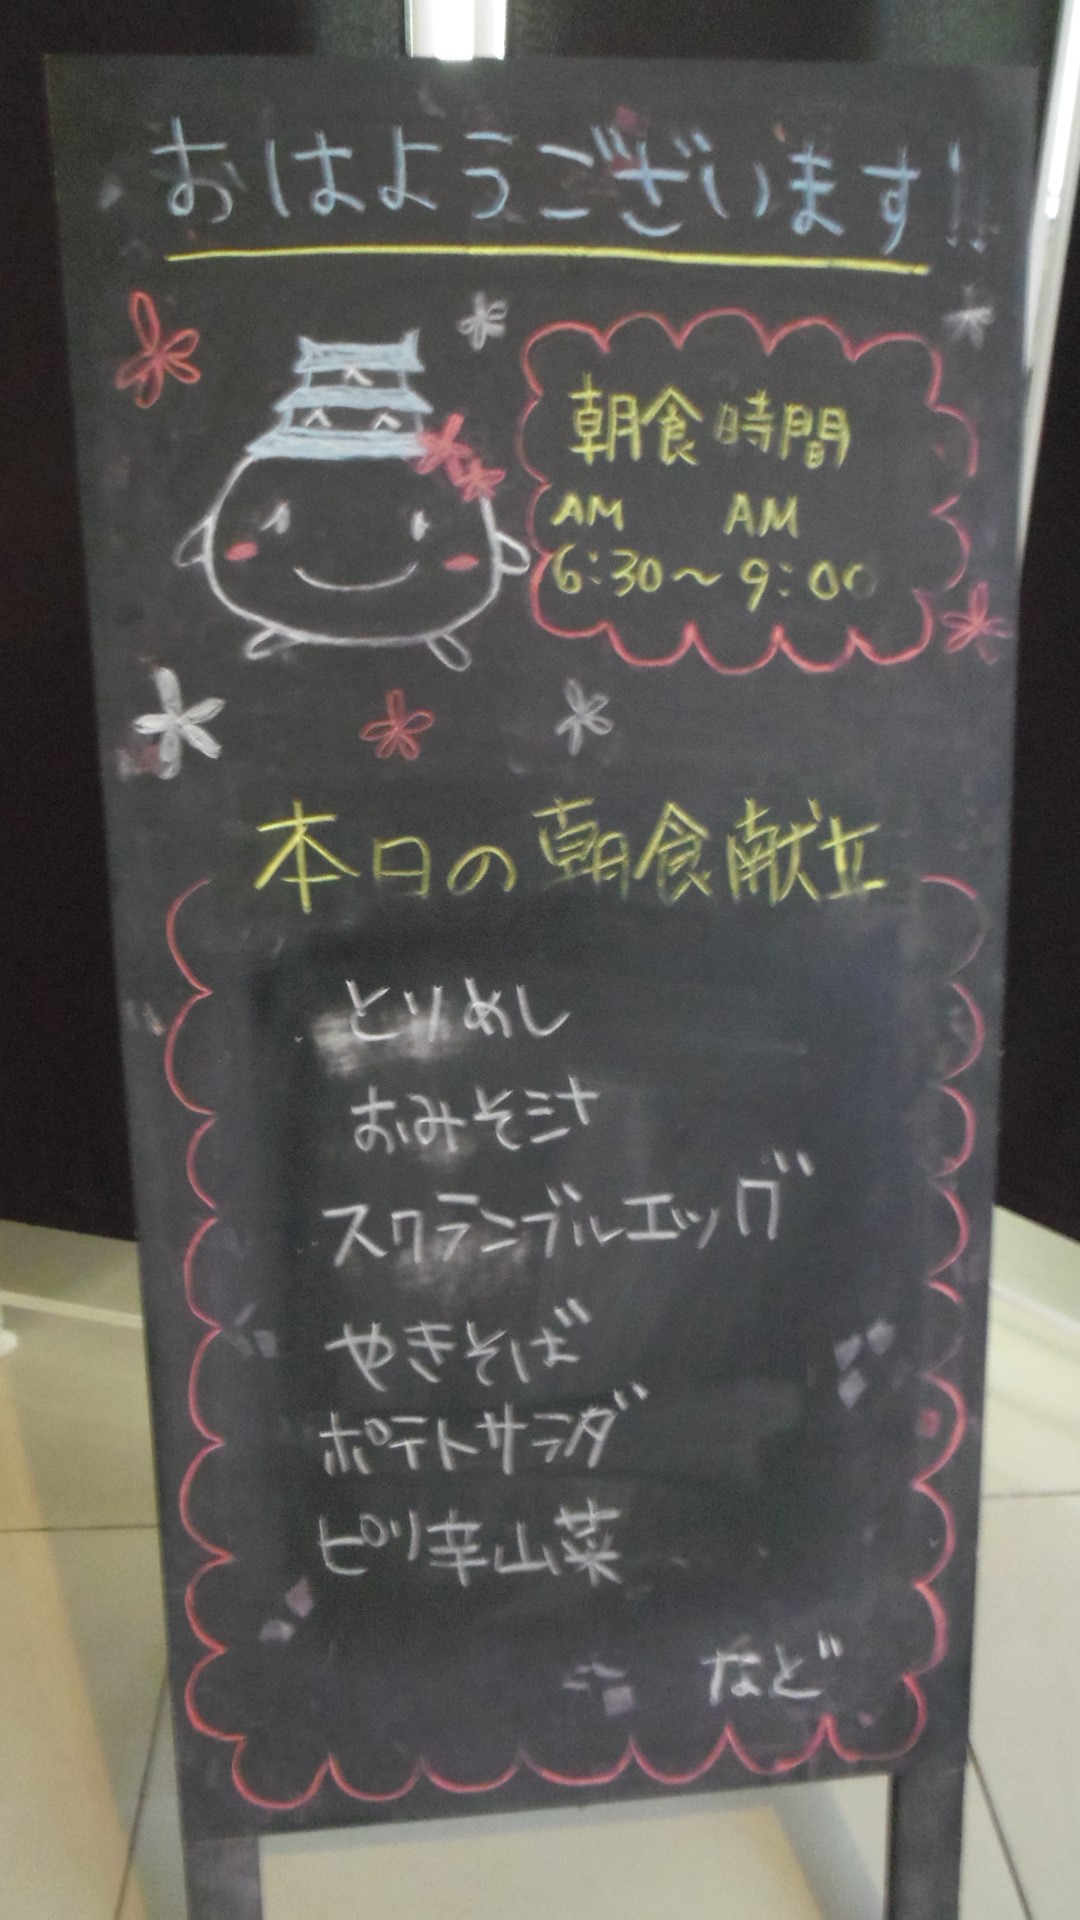 おはようございます!!
朝食時間
AM AM
6:30〜9:00
本日の朝食献立
とりめし
おみそ汁
スクランブルエッグ
やきそば
ポテトサラダ
ピリ辛山菜
など